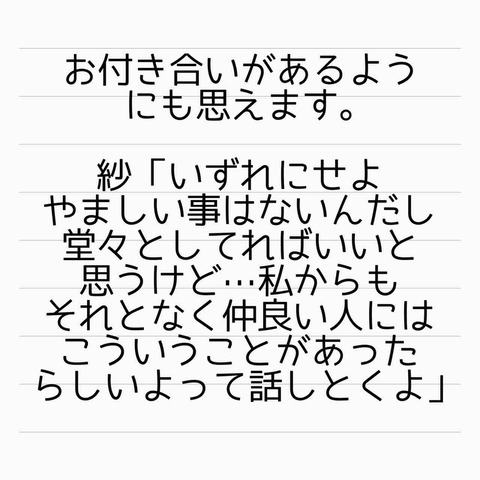 お付き合いがあるよう
にも思えます。
紗「いずれにせよ
やましい事はないんだし
堂々としてればいいと
思うけど…私からも
それとなく仲良い人には
こういうことがあった
らしいよって話しとくよ」